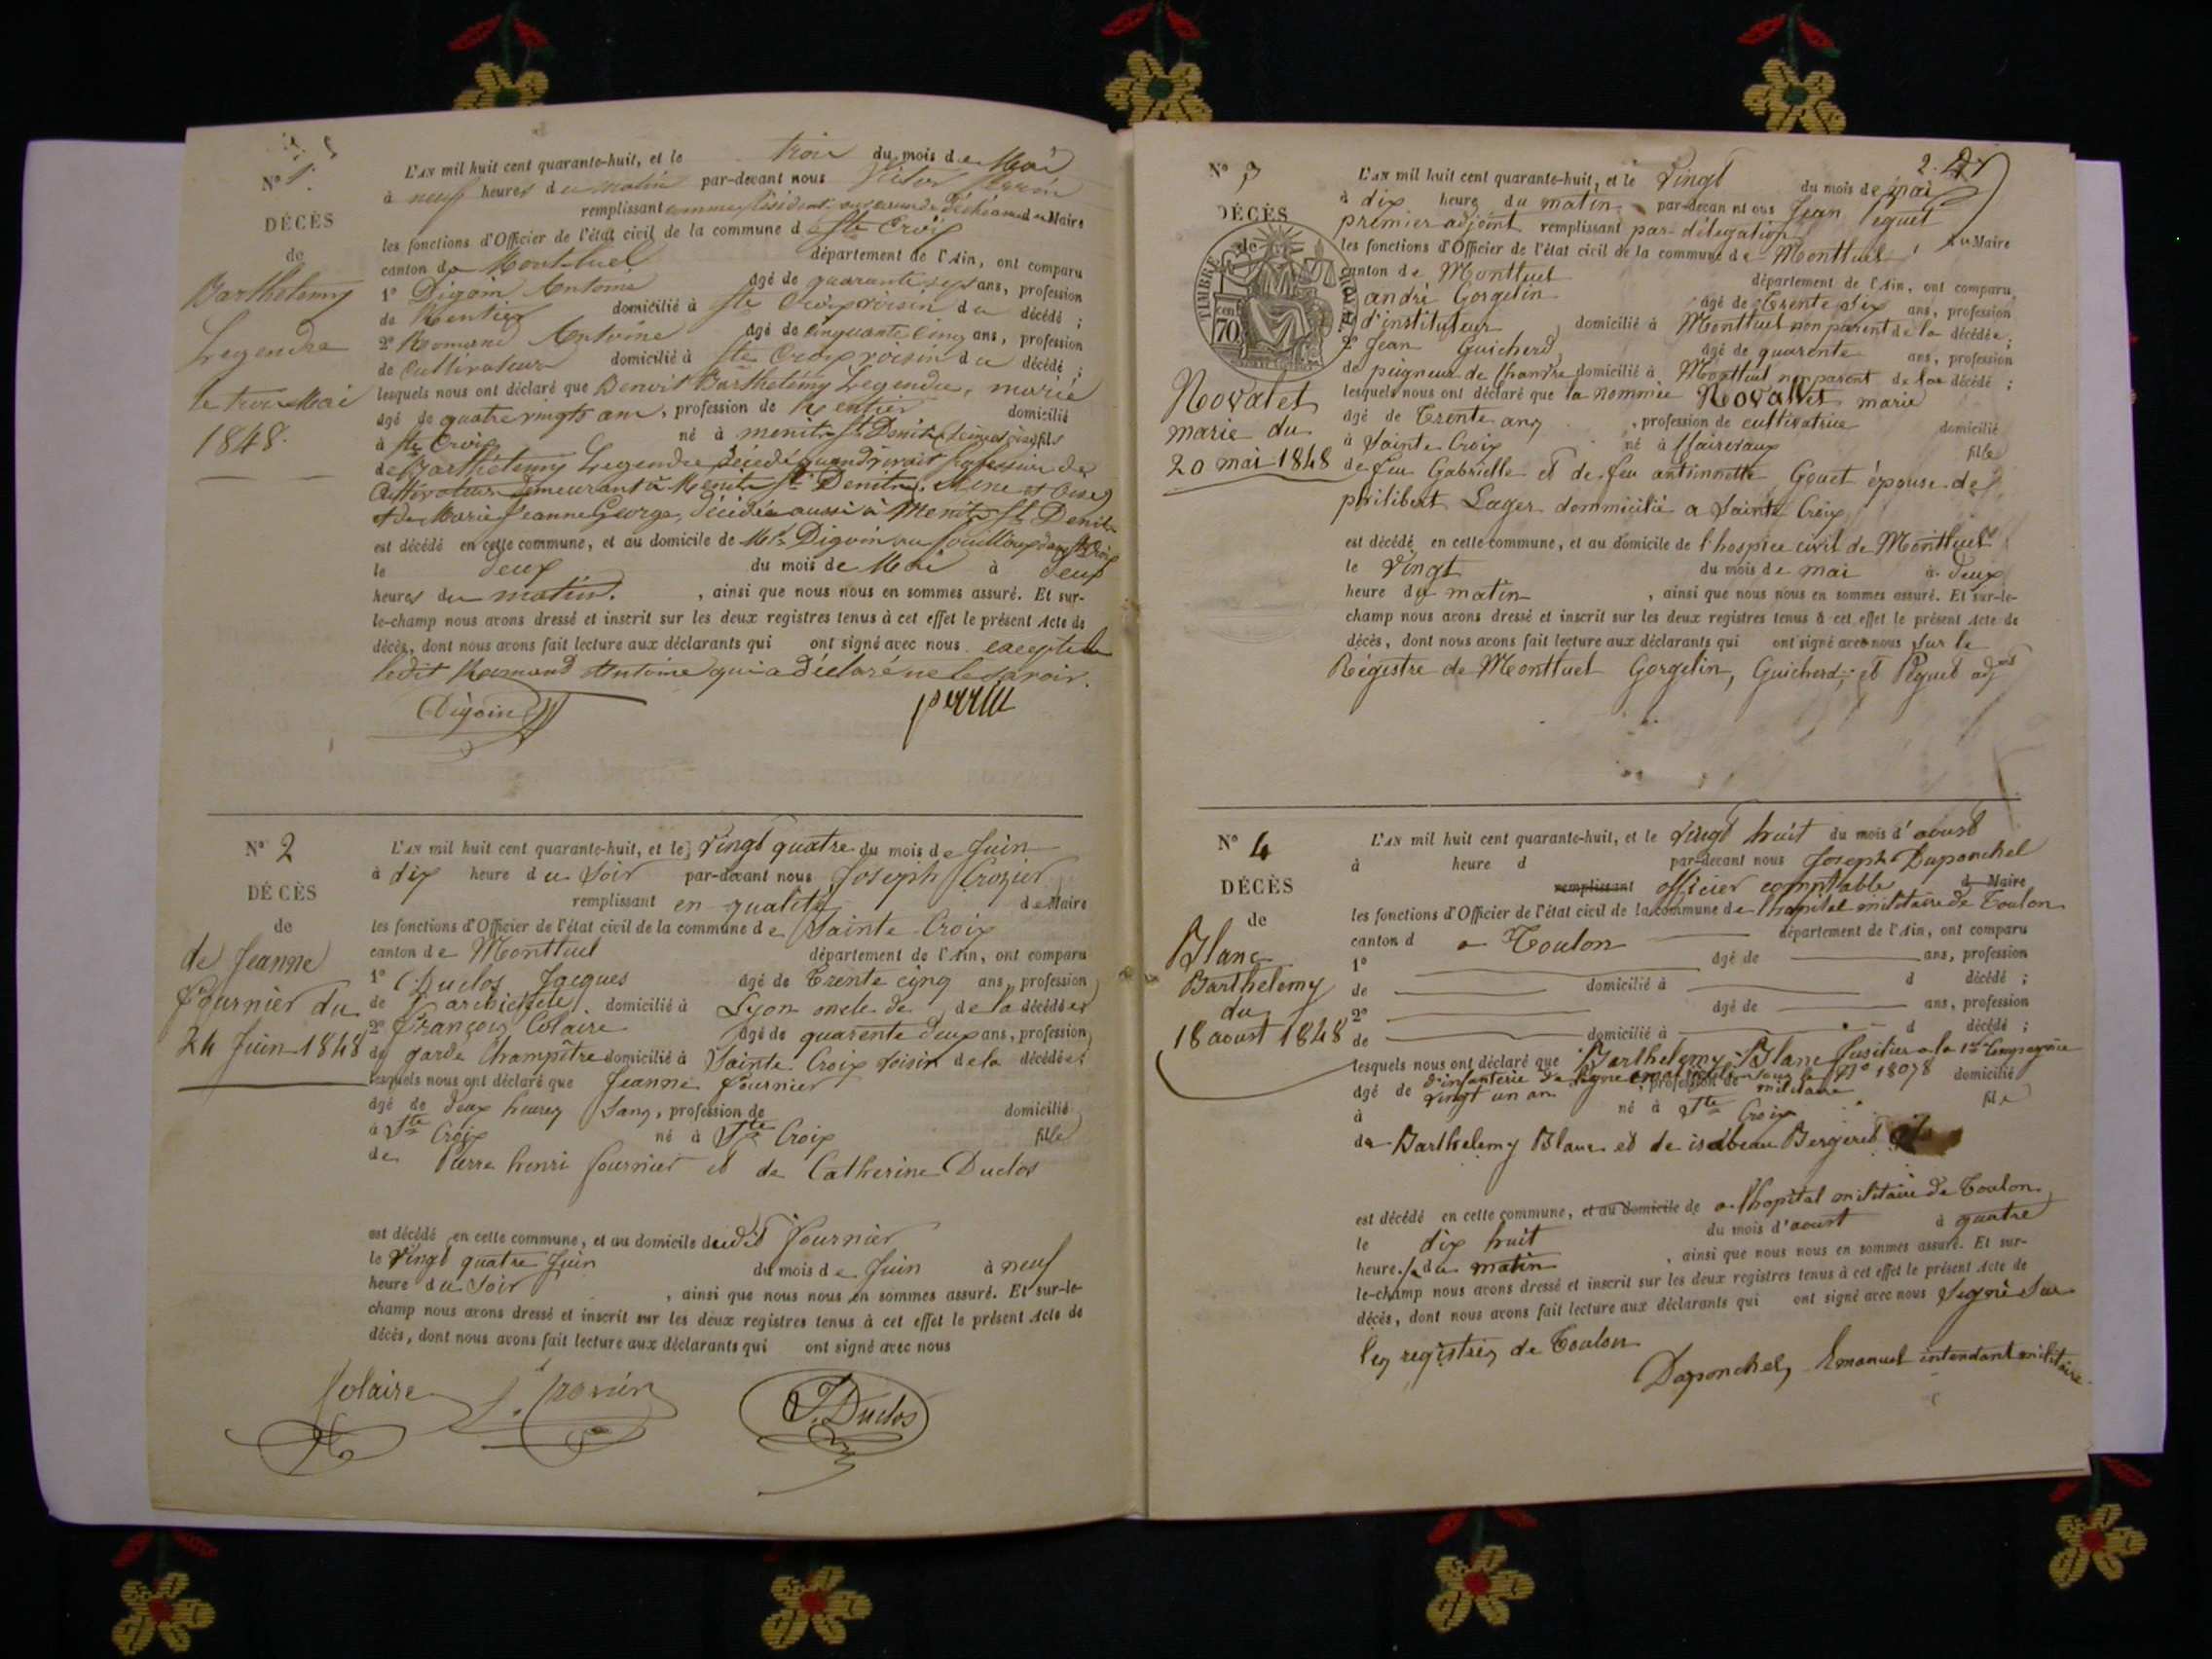 N° 1.
DÉCÈS
de
Barthélemy
Legendre
le trois Mai
1848.
L'AN mil huit cent quarante-huit, et le trois du mois de Mai
à neuf heures du matin par-devant nous Victor Perrin
remplissant comme Président du Maire
les fonctions d'Officier de l'état civil de la commune d Ste Croix
canton de Montluel département de l'Ain, ont comparu
1° Digoin Antoine âgé de quarante sept ans, profession
de Rentier domicilié à Ste Croix voisin du décédé ;
2° Romand Antoine âgé de cinquante cinq ans, profession
de Cultivateur domicilié à Ste Croix voisin du décédé ;
lesquels nous ont déclaré que Benoit Barthélémy Legendre, marié
âgé de quatre vingts ans, profession de Rentier domicilié
à Ste Croix né à menil St Denis Seine et oise fils
de Barthélemy Legendre décédé quand vivait profession de
Cultivateur demeurant à Menil St Denis, Seine et Oise,
et de Marie Jeanne George, décédée aussi à Menil St Denis
est décédé en cette commune, et au domicile de Mr Digoin
le deux du mois de Mai à deux
heures du matin. , ainsi que nous nous en sommes assuré. Et sur-
le-champ nous avons dressé et inscrit sur les deux registres tenus à cet effet le présent Acte de
décès, dont nous avons fait lecture aux déclarants qui ont signé avec nous excepté
ledit Romand Antoine qui a déclaré ne le savoir.
Digoin perrin
N° 2
DÉCÈS
de
de Jeanne
Fournier du
24 Juin 1848
L'AN mil huit cent quarante-huit, et le vingt quatre du mois de Juin
à dix heure du Soir par-devant nous Joseph Crozier
remplissant en qualité de Maire
les fonctions d'Officier de l'état civil de la commune de Sainte Croix
canton de Montluel département de l'Ain, ont comparu
1° Duclos Jacques âgé de Trente cinq ans, profession
de domicilié à Lyon oncle de de la décédée
2° François Colaire âgé de quarente deux ans, profession
de garde Champêtre domicilié à Sainte Croix voisin de la décédée
lesquels nous ont déclaré que Jeanne Fournier
âgé de deux heures Sans, profession de domicilié
à Ste Croix né à Ste Croix fille
de Pierre henri fournier et de Catherine Duclos
est décédé en cette commune, et au domicile dudit Fournier
le vingt quatre Juin du mois de Juin à neuf
heure du Soir , ainsi que nous nous en sommes assuré. Et sur-le-
champ nous avons dressé et inscrit sur les deux registres tenus à cet effet le présent Acte de
décès, dont nous avons fait lecture aux déclarants qui ont signé avec nous
Colaire J. Crozier J. Duclos
2.
N° 3
DÉCÈS
de
TIMBRE ROYAL
70 cen
Novalet
marie du
20 mai 1848
L'AN mil huit cent quarante-huit, et le Vingt du mois de mai
à dix heures du matin par-devant nous Jean Péguet
premier adjoint remplissant par délégation du Maire
les fonctions d'Officier de l'état civil de la commune de Montluel
canton de Montluel département de l'Ain, ont comparu
andré Gorgelin âgé de Trente six ans, profession
d'instituteur domicilié à Montluel non parent de la décédée ;
2° Jean Guicherd âgé de quarente ans, profession
de peigneur de Chanvre domicilié à Montluel non parent de la décédé ;
lesquels nous ont déclaré que la nommée Novallet marie
âgé de Trente ans , profession de cultivatrice domicilié
à Sainte Croix né à fille
de feu Gabrielle et de feu antionnette Gouet épouse de
philibert Lager dommicilié a Sainte Croix
est décédé en cette commune, et au domicile de l'hospice civil de Montluel
le Vingt du mois de mai à deux
heure du matin , ainsi que nous nous en sommes assuré. Et sur-le-
champ nous avons dressé et inscrit sur les deux registres tenus à cet effet le présent Acte de
décès, dont nous avons fait lecture aux déclarants qui ont signé avec nous Sur le
Régistre de Montluel Gorgelin, Guicherd, et Péguet adjt
N° 4
DÉCÈS
de
Blanc
Barthelemy
du
18 aoust 1848
L'AN mil huit cent quarante-huit, et le vingt huit du mois d'aoust
à heure d par-devant nous Joseph Duponchel
remplissant officier comptable d Maire
les fonctions d'Officier de l'état civil de la commune de l'hopital militaire de Toulon
canton d a Toulon département de l'Ain, ont comparu
1° âgé de ans, profession
de domicilié à d décédé ;
2° âgé de ans, profession
de domicilié à d décédé ;
lesquels nous ont déclaré que Barthelemy Blanc fusilier a la 1re Compagnie
d'infanterie de No 18078
âgé de vingt un an profession de militaire domicilié
à né à Ste Croix fils
de Barthelemy Blanc et de isabeau Bergeret
est décédé en cette commune, et au domicile de a l'hopital militaire de Toulon
le dix huit du mois d'aoust à quatre
heures du matin , ainsi que nous nous en sommes assuré. Et sur-
le-champ nous avons dressé et inscrit sur les deux registres tenus à cet effet le présent Acte de
décès, dont nous avons fait lecture aux déclarants qui ont signé avec nous Signé Sur
les registres de Toulon
Duponchel, Emanuel intendant militaire